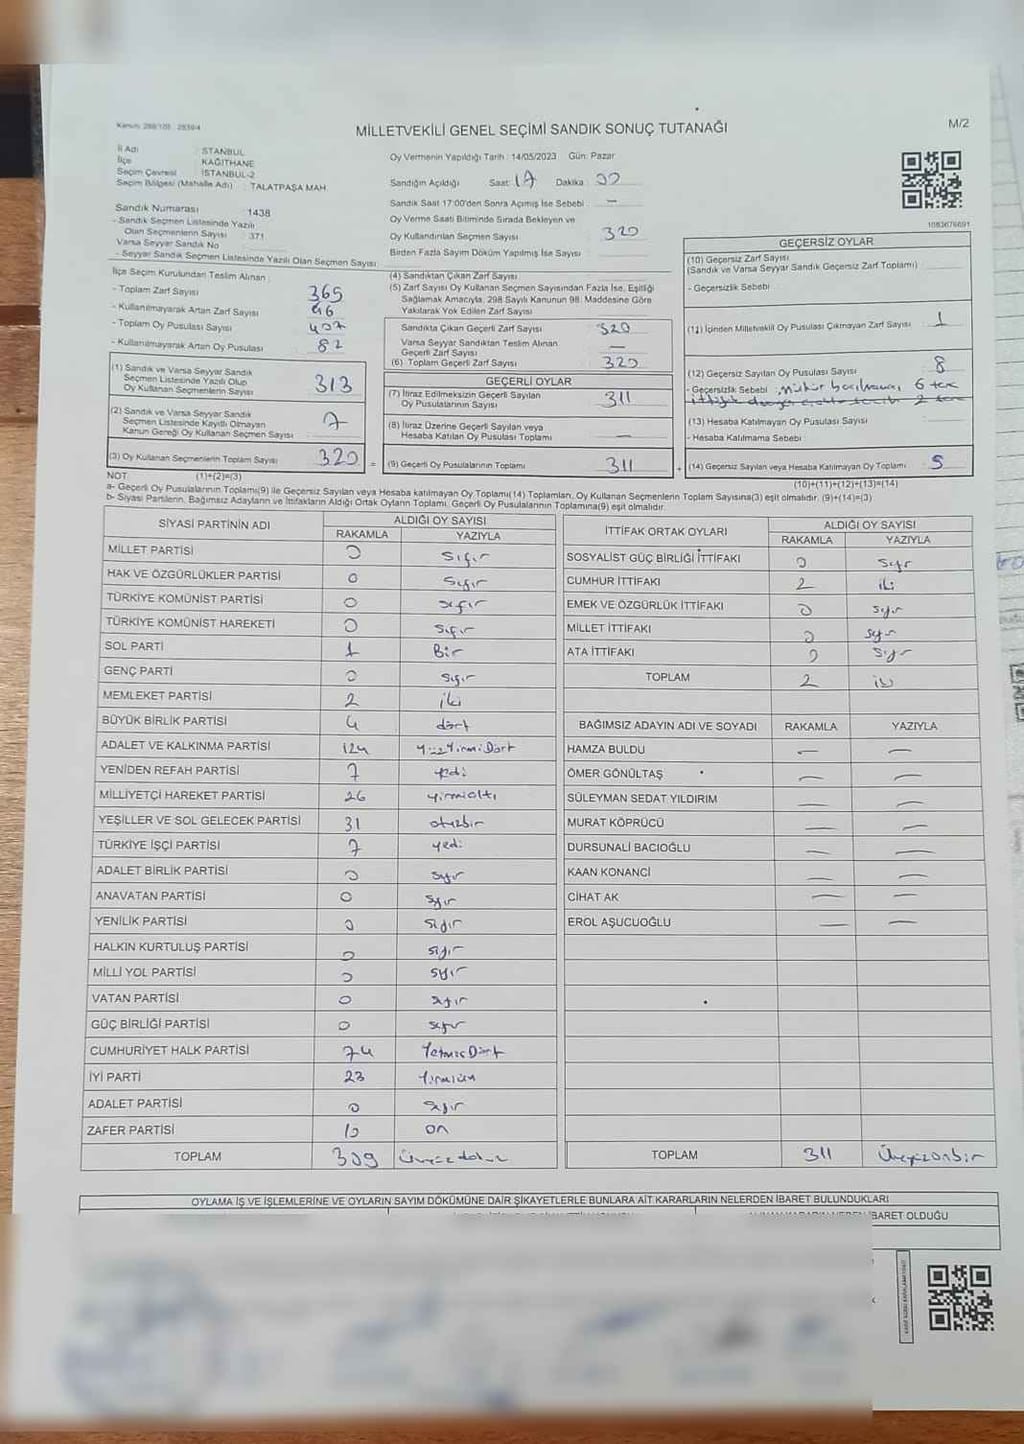 Kanun: 298/105
MİLLETVEKİLİ GENEL SEÇİMİ SANDIK SONUÇ TUTANAĞI
M/2
İl Adı : İSTANBUL
İlçe : KAĞITHANE
Seçim Çevresi : İSTANBUL-2
Seçim Bölgesi (Mahalle Adı) : TALATPAŞA MAH.
Oy Vermenin Yapıldığı Tarih : 14/05/2023 Gün: Pazar
Sandığın Açıldığı Saat: 17 Dakika 00
Sandık Saat 17:00'den Sonra Açımış İse Sebebi : —
Oy Verme Saati Bitiminde Sırada Bekleyen ve
Oy Kullandırılan Seçmen Sayısı 320
Birden Fazla Sayım Döküm Yapılmış İse Sayısı
Sandık Numarası : 1438
- Sandık Seçmen Listesinde Yazılı
Olan Seçmenlerin Sayısı : 371
Varsa Seyyar Sandık No
- Seyyar Sandık Seçmen Listesinde Yazılı Olan Seçmen Sayısı:
1083676691
İlçe Seçim Kurulundan Teslim Alınan :
- Toplam Zarf Sayısı 365
- Kullanılmayarak Artan Zarf Sayısı
- Toplam Oy Pusulası Sayısı 407
- Kullanılmayarak Artan Oy Pusulası 82
(1) Sandık ve Varsa Seyyar Sandık
Seçmen Listesinde Yazılı Olup
Oy Kullanan Seçmenlerin Sayısı 313
(2) Sandık ve Varsa Seyyar Sandık
Seçmen Listesinde Kayıtlı Olmayan
Kanun Gereği Oy Kullanan Seçmen Sayısı 7
(3) Oy Kullanan Seçmenlerin Toplam Sayısı 320 =
(1)+(2)=(3)
(4) Sandıktan Çıkan Zarf Sayısı
(5) Zarf Sayısı Oy Kullanan Seçmen Sayısından Fazla İse, Eşitliği
Sağlamak Amacıyla, 298 Sayılı Kanunun 98. Maddesine Göre
Yakılarak Yok Edilen Zarf Sayısı
Sandıkta Çıkan Geçerli Zarf Sayısı 320
Varsa Seyyar Sandıktan Teslim Alınan
Geçerli Zarf Sayısı —
(6) Toplam Geçerli Zarf Sayısı 320
GEÇERLİ OYLAR
(7) İtiraz Edilmeksizin Geçerli Sayılan
Oy Pusulalarının Sayısı 311
(8) İtiraz Üzerine Geçerli Sayılan veya
Hesaba Katılan Oy Pusulası Toplamı —
(9) Geçerli Oy Pusulalarının Toplamı 311 +
GEÇERSİZ OYLAR
(10) Geçersiz Zarf Sayısı
(Sandık ve Varsa Seyyar Sandık Geçersiz Zarf Toplamı)
- Geçersizlik Sebebi
(11) İçinden Milletvekili Oy Pusulası Çıkmayan Zarf Sayısı 1
(12) Geçersiz Sayılan Oy Pusulası Sayısı 8
- Geçersizlik Sebebi : mühür 6
(13) Hesaba Katılmayan Oy Pusulası Sayısı
- Hesaba Katılmama Sebebi
(14) Geçersiz Sayılan veya Hesaba Katılmayan Oy Toplamı
(10)+(11)+(12)+(13)=(14)
NOT:
a- Geçerli Oy Pusulalarının Toplamı(9) ile Geçersiz Sayılan veya Hesaba katılmayan Oy Toplamı(14) Toplamları, Oy Kullanan Seçmenlerin Toplam Sayısına(3) eşit olmalıdır. (9)+(14)=(3)
b- Siyasi Partilerin, Bağımsız Adayların ve İttifakların Aldığı Ortak Oyların Toplamı, Geçerli Oy Pusulalarının Toplamına(9) eşit olmalıdır.
SİYASİ PARTİNİN ADI ALDIĞI OY SAYISI
RAKAMLA YAZIYLA
MİLLET PARTİSİ 0 Sıfır
HAK VE ÖZGÜRLÜKLER PARTİSİ 0 Sıfır
TÜRKİYE KOMÜNİST PARTİSİ 0 sıfır
TÜRKİYE KOMÜNİST HAREKETİ 0 Sıfır
SOL PARTİ 1 Bir
GENÇ PARTİ 0 Sıfır
MEMLEKET PARTİSİ 2 iki
BÜYÜK BİRLİK PARTİSİ 4 dört
ADALET VE KALKINMA PARTİSİ 124 YüzYirmiDört
YENİDEN REFAH PARTİSİ 7 yedi
MİLLİYETÇİ HAREKET PARTİSİ 26 yirmialtı
YEŞİLLER VE SOL GELECEK PARTİSİ 31 otuzbir
TÜRKİYE İŞÇİ PARTİSİ 7 yedi
ADALET BİRLİK PARTİSİ 0 sıfır
ANAVATAN PARTİSİ 0 sıfır
YENİLİK PARTİSİ 0 sıfır
HALKIN KURTULUŞ PARTİSİ 0 sıfır
MİLLİ YOL PARTİSİ 0 sıfır
VATAN PARTİSİ 0 sıfır
GÜÇ BİRLİĞİ PARTİSİ 0 sıfır
CUMHURİYET HALK PARTİSİ 74 YetmişDört
İYİ PARTİ 23 Yirmiüç
ADALET PARTİSİ 0 sıfır
ZAFER PARTİSİ 10 on
TOPLAM 309 Üçyüzdokuz
İTTİFAK ORTAK OYLARI ALDIĞI OY SAYISI
RAKAMLA YAZIYLA
SOSYALİST GÜÇ BİRLİĞİ İTTİFAKI 0 sıfır
CUMHUR İTTİFAKI 2 iki
EMEK VE ÖZGÜRLÜK İTTİFAKI 0 sıfır
MİLLET İTTİFAKI 0 sıfır
ATA İTTİFAKI 0 sıfır
TOPLAM 2 iki
BAĞIMSIZ ADAYIN ADI VE SOYADI RAKAMLA YAZIYLA
HAMZA BULDU — —
ÖMER GÖNÜLTAŞ — —
SÜLEYMAN SEDAT YILDIRIM — —
MURAT KÖPRÜCÜ — —
DURSUNALİ BACIOĞLU — —
KAAN KONANCİ — —
CİHAT AK — —
EROL AŞUCUOĞLU — —
TOPLAM 311 Üçyüzonbir
OYLAMA İŞ VE İŞLEMLERİNE VE OYLARIN SAYIM DÖKÜMÜNE DAİR ŞİKAYETLERLE BUNLARA AİT KARARLARIN NELERDEN İBARET BULUNDUKLARI
İBARET OLDUĞU